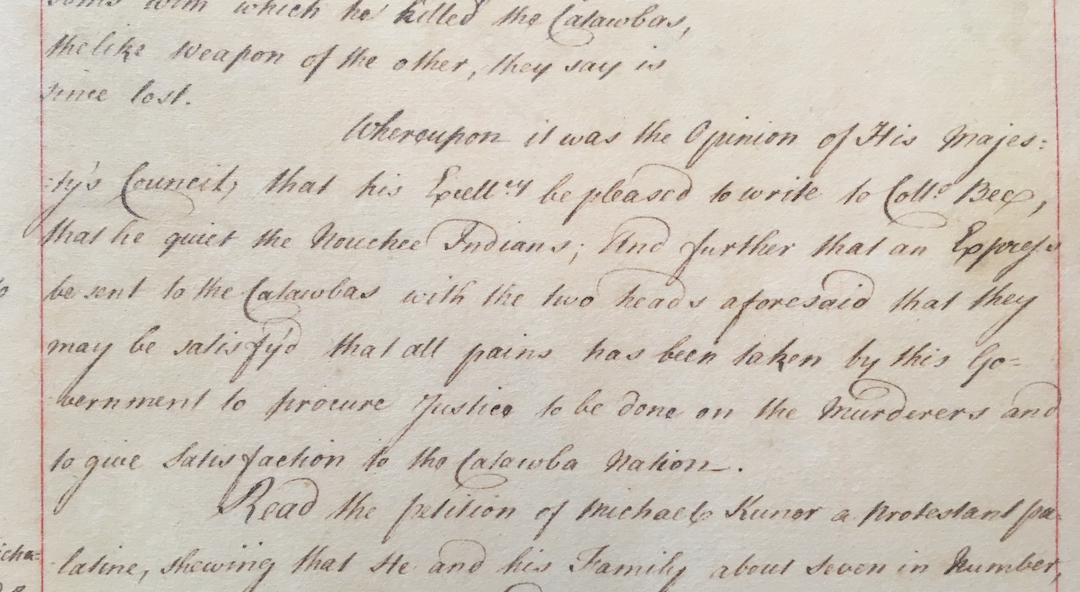 with which he killed the Catawbas,
the like weapon of the other, they say is
since lost.
Whereupon it was the Opinion of His Majes:
:ty's Council, that his Excell:cy be pleased to write to Coll:o Bee,
that he quiet the Nouchee Indians; And further that an Express
be sent to the Catawbas with the two heads aforesaid that they
may be satisfy'd that all pains has been taken by this Go=
vernment to procure Justice to be done on the Murderers and
to give Satisfaction to the Catawba Nation.
Read the petition of Michael Kunor a Protestant pa:
latine, shewing that He and his Family about seven in Number,